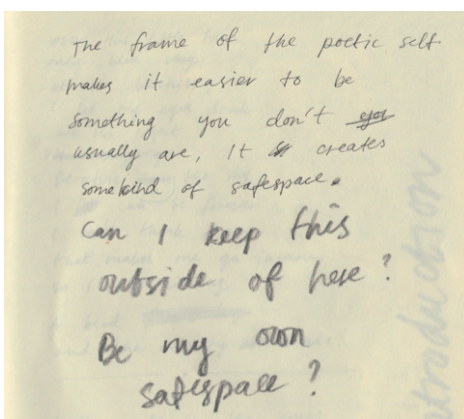 The frame of the poetic self
makes it easier to be
something you don't you
usually are, It creates
somekind of safespace.
Can I keep this
outside of here?
Be my own
safespace?
introduction